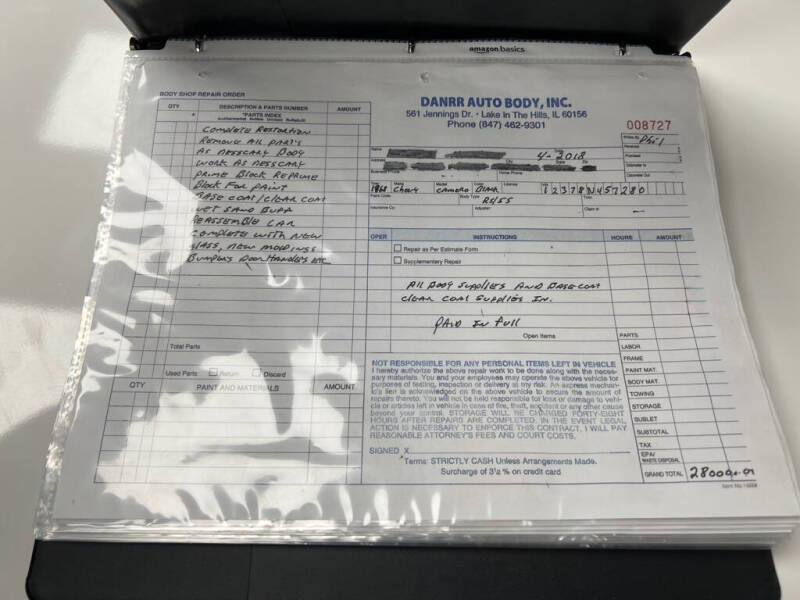 amazon basics
BODY SHOP REPAIR ORDER
QTY DESCRIPTION & PARTS NUMBER AMOUNT
*PARTS INDEX
COMPLETE RESTORTION
REMOVE ALL PARTS
AS NESSCARY BODY
WORK AS NESSCARY
PRIME BLOCK REPRIME
BLOCK FOR PAINT
BASE COAT/CLEAR COAT
WET SAND BUFF
REASSEMBLE CAR
COMPLETE WITH NEW
GLASS, NEW MOLDINGS
BUMPERS DOOR HANDLES ETC
Total Parts
Used Parts Return Discard
QTY PAINT AND MATERIALS AMOUNT
DANRR AUTO BODY, INC.
561 Jennings Dr. • Lake In The Hills, IL 60156
Phone (847) 462-9301
008727
Name
4-2018
Written By Phil
Received
Promised
Address City State Zip
Odometer In
Business Phone Home Phone
Odometer Out
Year Make Model Color License
1968 Chevy Camero Black 12378N457280
Paint Code Body Type Trim
RS/SS
Insurance Co. Adjuster Claim #
OPER INSTRUCTIONS HOURS AMOUNT
Repair as Per Estimate Form
Supplementary Repair
All Body Supplies And Basecoat
Clear Coat Supplies In.
PAID IN FULL
Open Items
PARTS
LABOR
FRAME
PAINT MAT.
BODY MAT.
TOWING
STORAGE
SUBLET
SUBTOTAL
TAX
EPA/
WASTE DISPOSAL
GRAND TOTAL
NOT RESPONSIBLE FOR ANY PERSONAL ITEMS LEFT IN VEHICLE
I hereby authorize the above repair work to be done along with the neces-
sary materials. You and your employees may operate the above vehicle for
purposes of testing, inspection or delivery at my risk. An express mechan-
ic's lien is acknowledged on above vehicle to secure the amount of
repairs thereto. You will not be held responsible for loss or damage to vehi-
cle or articles left in vehicle in case of fire, theft, accident or any other cause
beyond your control. STORAGE WILL BE CHARGED FORTY-EIGHT
HOURS AFTER REPAIRS ARE COMPLETED. IN THE EVENT LEGAL
ACTION IS NECESSARY TO ENFORCE THIS CONTRACT, I WILL PAY
REASONABLE ATTORNEY'S FEES AND COURT COSTS.
SIGNED X
*Terms: STRICTLY CASH Unless Arrangements Made.
Surcharge of 3½ % on credit card